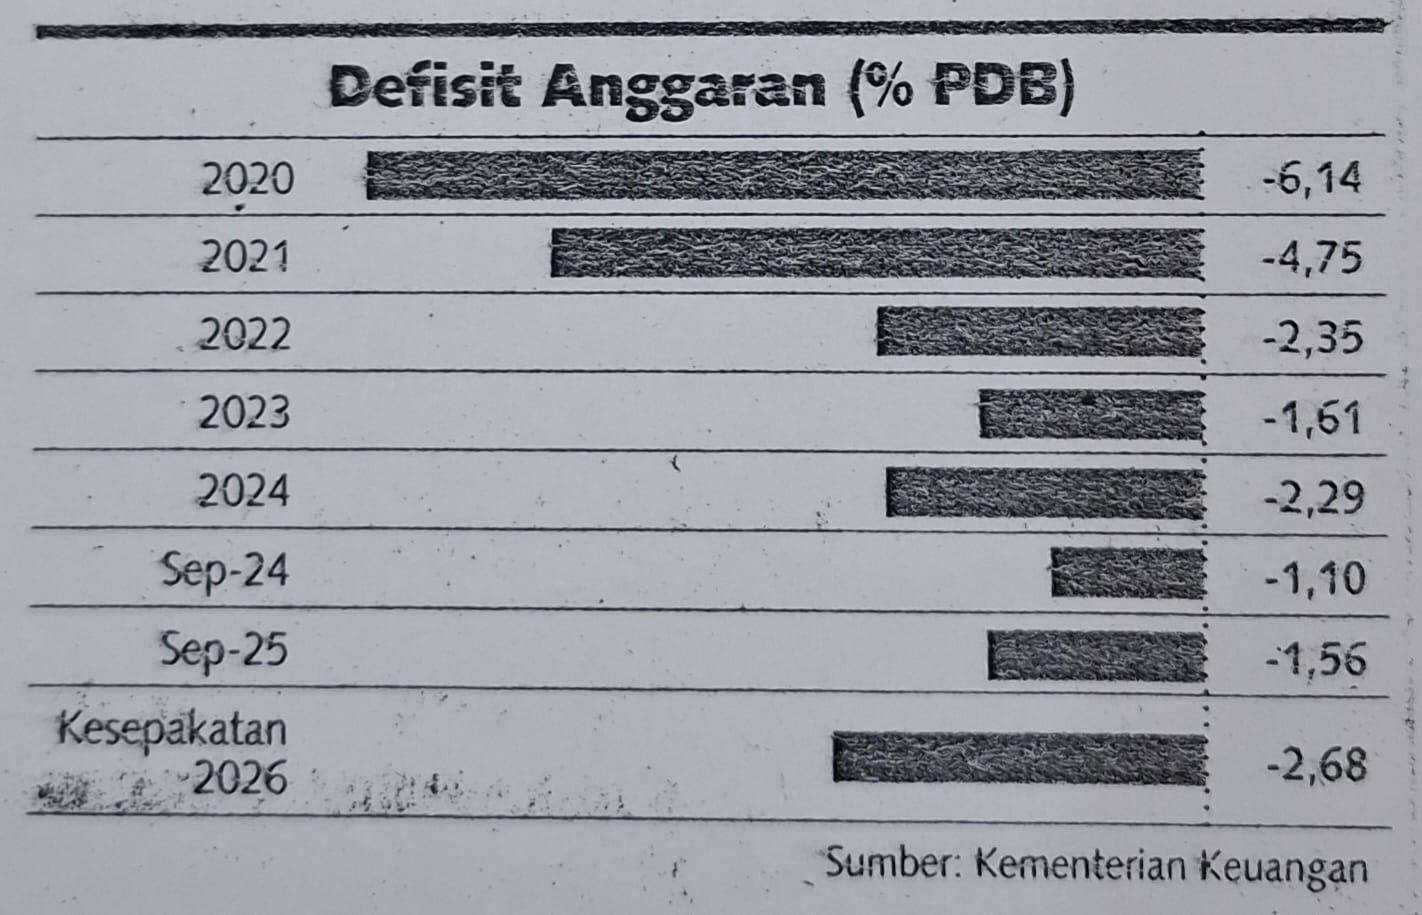 Defisit Anggaran (% PDB)
2020 -6,14
2021 -4,75
2022 -2,35
2023 -1,61
2024 -2,29
Sep-24 -1,10
Sep-25 -1,56
Kesepakatan
2026 -2,68
Sumber: Kementerian Keuangan